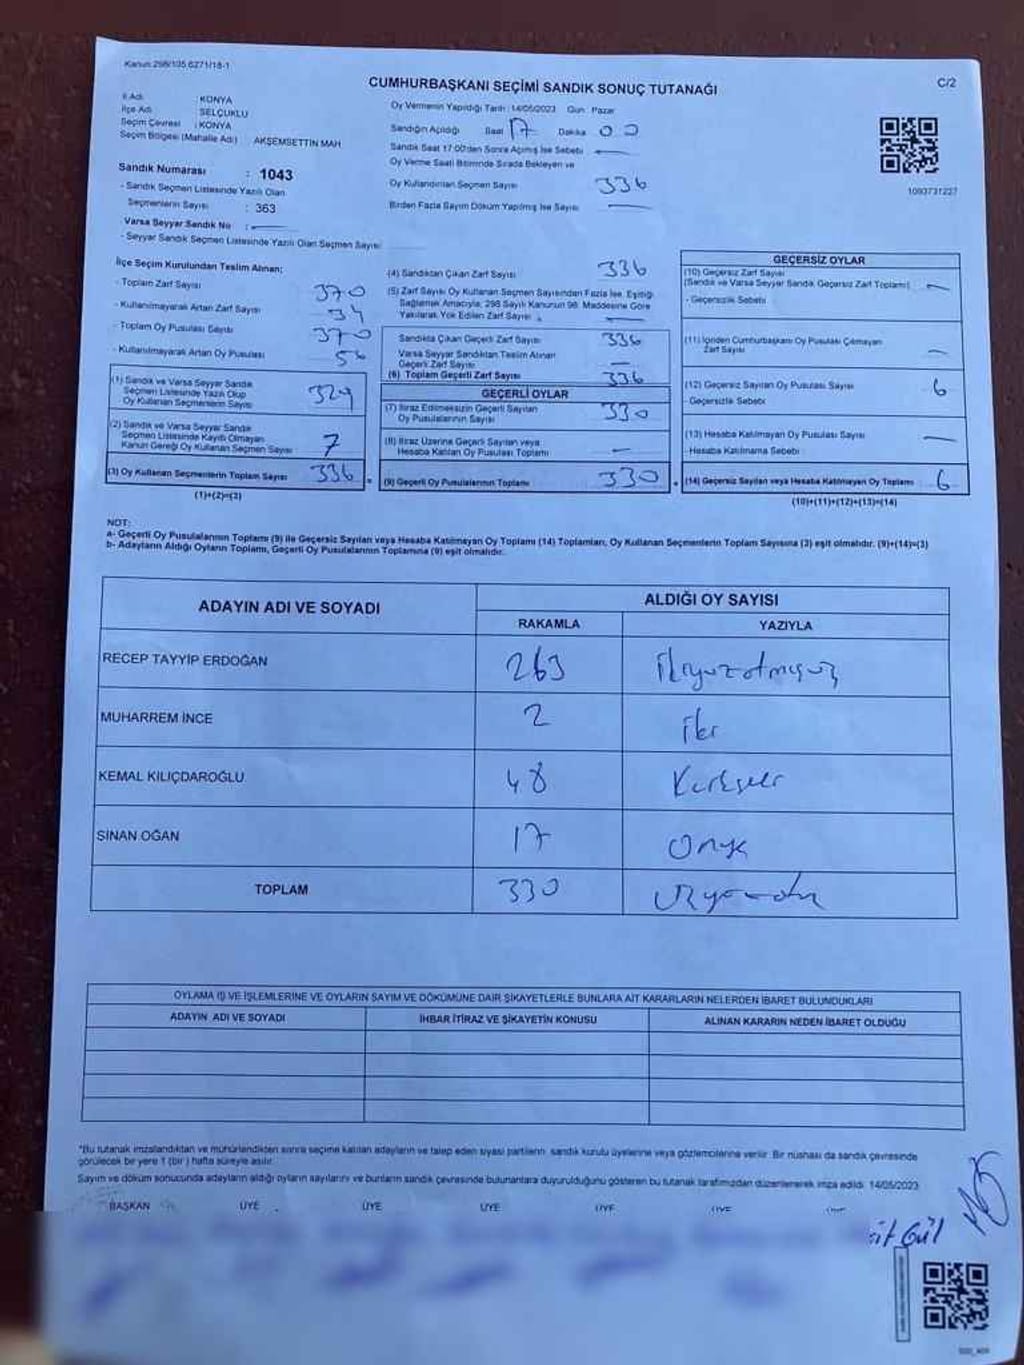 Kanun:298/105.6271/18-1
C/2
CUMHURBAŞKANI SEÇİMİ SANDIK SONUÇ TUTANAĞI
İl Adı : KONYA
İlçe Adı : SELÇUKLU
Seçim Çevresi : KONYA
Seçim Bölgesi (Mahalle Adı) : AKŞEMSETTİN MAH
Oy Vermenin Yapıldığı Tarih : 14/05/2023 Gün : Pazar
Sandığın Açıldığı Saat 17 Dakika 00
Sandık Saat 17:00'den Sonra Açılmış İse Sebebi
Oy Verme Saati Bitiminde Sırada Bekleyen ve
Oy Kullandırılan Seçmen Sayısı 336
Birden Fazla Sayım Döküm Yapılmış İse Sayısı
1093731227
Sandık Numarası : 1043
- Sandık Seçmen Listesinde Yazılı Olan
Seçmenlerin Sayısı : 363
Varsa Seyyar Sandık No :
- Seyyar Sandık Seçmen Listesinde Yazılı Olan Seçmen Sayısı
İlçe Seçim Kurulundan Teslim Alınan;
- Toplam Zarf Sayısı 370
- Kullanılmayarak Artan Zarf Sayısı 34
- Toplam Oy Pusulası Sayısı 370
- Kullanılmayarak Artan Oy Pusulası
(1) Sandık ve Varsa Seyyar Sandık
Seçmen Listesinde Yazılı Olup
Oy Kullanan Seçmenlerin Sayısı 329
(2) Sandık ve Varsa Seyyar Sandık
Seçmen Listesinde Kayıtlı Olmayan
Kanun Gereği Oy Kullanan Seçmen Sayısı 7
(3) Oy Kullanan Seçmenlerin Toplam Sayısı 336
(1)+(2)=(3)
(4) Sandıktan Çıkan Zarf Sayısı 336
(5) Zarf Sayısı Oy Kullanan Seçmen Sayısından Fazla İse, Eşitliği
Sağlamak Amacıyla, 298 Sayılı Kanunun 98. Maddesine Göre
Yakılarak Yok Edilen Zarf Sayısı
Sandıkta Çıkan Geçerli Zarf Sayısı 336
Varsa Seyyar Sandıktan Teslim Alınan
Geçerli Zarf Sayısı —
(6) Toplam Geçerli Zarf Sayısı 336
GEÇERLİ OYLAR
(7) İtiraz Edilmeksizin Geçerli Sayılan
Oy Pusulalarının Sayısı 330
(8) İtiraz Üzerine Geçerli Sayılan veya
Hesaba Katılan Oy Pusulası Toplamı —
(9) Geçerli Oy Pusulalarının Toplamı 330
GEÇERSİZ OYLAR
(10) Geçersiz Zarf Sayısı
(Sandık ve Varsa Seyyar Sandık Geçersiz Zarf Toplamı) —
- Geçersizlik Sebebi
(11) İçinden Cumhurbaşkanı Oy Pusulası Çıkmayan
Zarf Sayısı —
(12) Geçersiz Sayılan Oy Pusulası Sayısı 6
- Geçersizlik Sebebi
(13) Hesaba Katılmayan Oy Pusulası Sayısı —
- Hesaba Katılmama Sebebi
(14) Geçersiz Sayılan veya Hesaba Katılmayan Oy Toplamı 6
(10)+(11)+(12)+(13)=(14)
NOT:
a- Geçerli Oy Pusulalarının Toplamı (9) ile Geçersiz Sayılan veya Hesaba Katılmayan Oy Toplamı (14) Toplamları, Oy Kullanan Seçmenlerin Toplam Sayısına (3) eşit olmalıdır. (9)+(14)=(3)
b- Adayların Aldığı Oyların Toplamı, Geçerli Oy Pusulalarının Toplamına (9) eşit olmalıdır.
ADAYIN ADI VE SOYADI
ALDIĞI OY SAYISI
RAKAMLA YAZIYLA
RECEP TAYYİP ERDOĞAN 263 ikiyüzatmışüç
MUHARREM İNCE 2 iki
KEMAL KILIÇDAROĞLU 48 Kırksekiz
SİNAN OĞAN 17 Onyedi
TOPLAM 330
OYLAMA İŞ VE İŞLEMLERİNE VE OYLARIN SAYIM VE DÖKÜMÜNE DAİR ŞİKAYETLERLE BUNLARA AİT KARARLARIN NELERDEN İBARET BULUNDUKLARI
ADAYIN ADI VE SOYADI İHBAR İTİRAZ VE ŞİKAYETİN KONUSU ALINAN KARARIN NEDEN İBARET OLDUĞU
*Bu tutanak imzalandıktan ve mühürlendikten sonra seçime katılan adayların ve talep eden siyasi partilerin sandık kurulu üyelerine veya gözlemcilerine verilir. Bir nüshası da sandık çevresinde
görülecek bir yere 1 (bir) hafta süreyle asılır.
Sayım ve döküm sonucunda adayların aldığı oyların sayılarını ve bunların sandık çevresinde bulunanlara duyurulduğunu gösteren bu tutanak tarafımızdan düzenlenerek imza edildi. 14/05/2023
BAŞKAN ÜYE ÜYE ÜYE ÜYE ÜYE
Gül